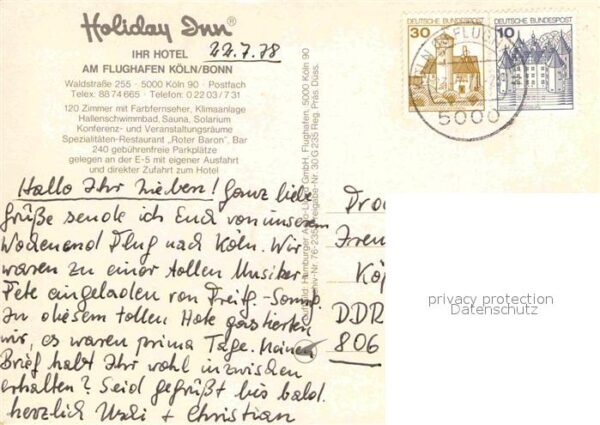 Holiday Inn®
IHR HOTEL
22.7.78
AM FLUGHAFEN KÖLN/BONN
Waldstraße 255 · 5000 Köln 90 · Postfach
Telex: 8874665 · Telefon: 02203/731
120 Zimmer mit Farbfernseher, Klimaanlage
Hallenschwimmbad, Sauna, Solarium
Konferenz- und Veranstaltungsräume
Spezialitäten-Restaurant „Roter Baron", Bar
240 gebührenfreie Parkplätze
gelegen an der E-5 mit eigener Ausfahrt
und direkter Zufahrt zum Hotel
Hallo Ihr Lieben! Ganz liebe
Grüße sende ich Euch von unserem
Wochenend Flug nach Köln. Wir
waren zu einer tollen Musiker
Fete eingeladen von Freitg.-Sonntg.
In diesem tollen Hote gastierten
wir, es waren prima Tage. Meinen
Brief habt Ihr wohl inzwischen
erhalten? Seid gegrüßt bis bald.
herzlich + Christian
Luftbild: Hamburger GmbH, Flughafen, 5000 Köln 90
30 G 235 Reg. Präs Düss.
30 DEUTSCHE BUNDESPOST
DEUTSCHE BUNDESPOST 10
5000
DDR
806
privacy protection
Datenschutz